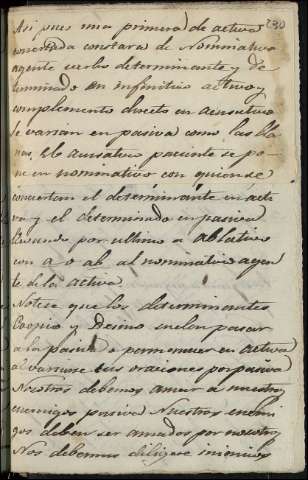 230
Asi pues una primera de activa
concertada constara de Nominativo
agente verbo determinante y de
terminado en infinitivo activo, y
complemento directo en acusativo
se varian en pasiva como las lla
nas. El acusativo paciente se po
ne en nominativo con quien se
conciertan el determinante en acti
va y el determinado en pasiva
llevando por ultimo a ablativo
con a o ab al nominativo agen
te de la activa.
Notese que los determinantes
Coepio y Desino suelen pasar
a la pasiva o permanecer en activa
al variarse sus oraciones por pasiva
Nosotros debemos amar a nuestros
enemigos pasiva Nuestros enemi
gos deben ser amados por nosotros
Nos debemus diligere inimicos